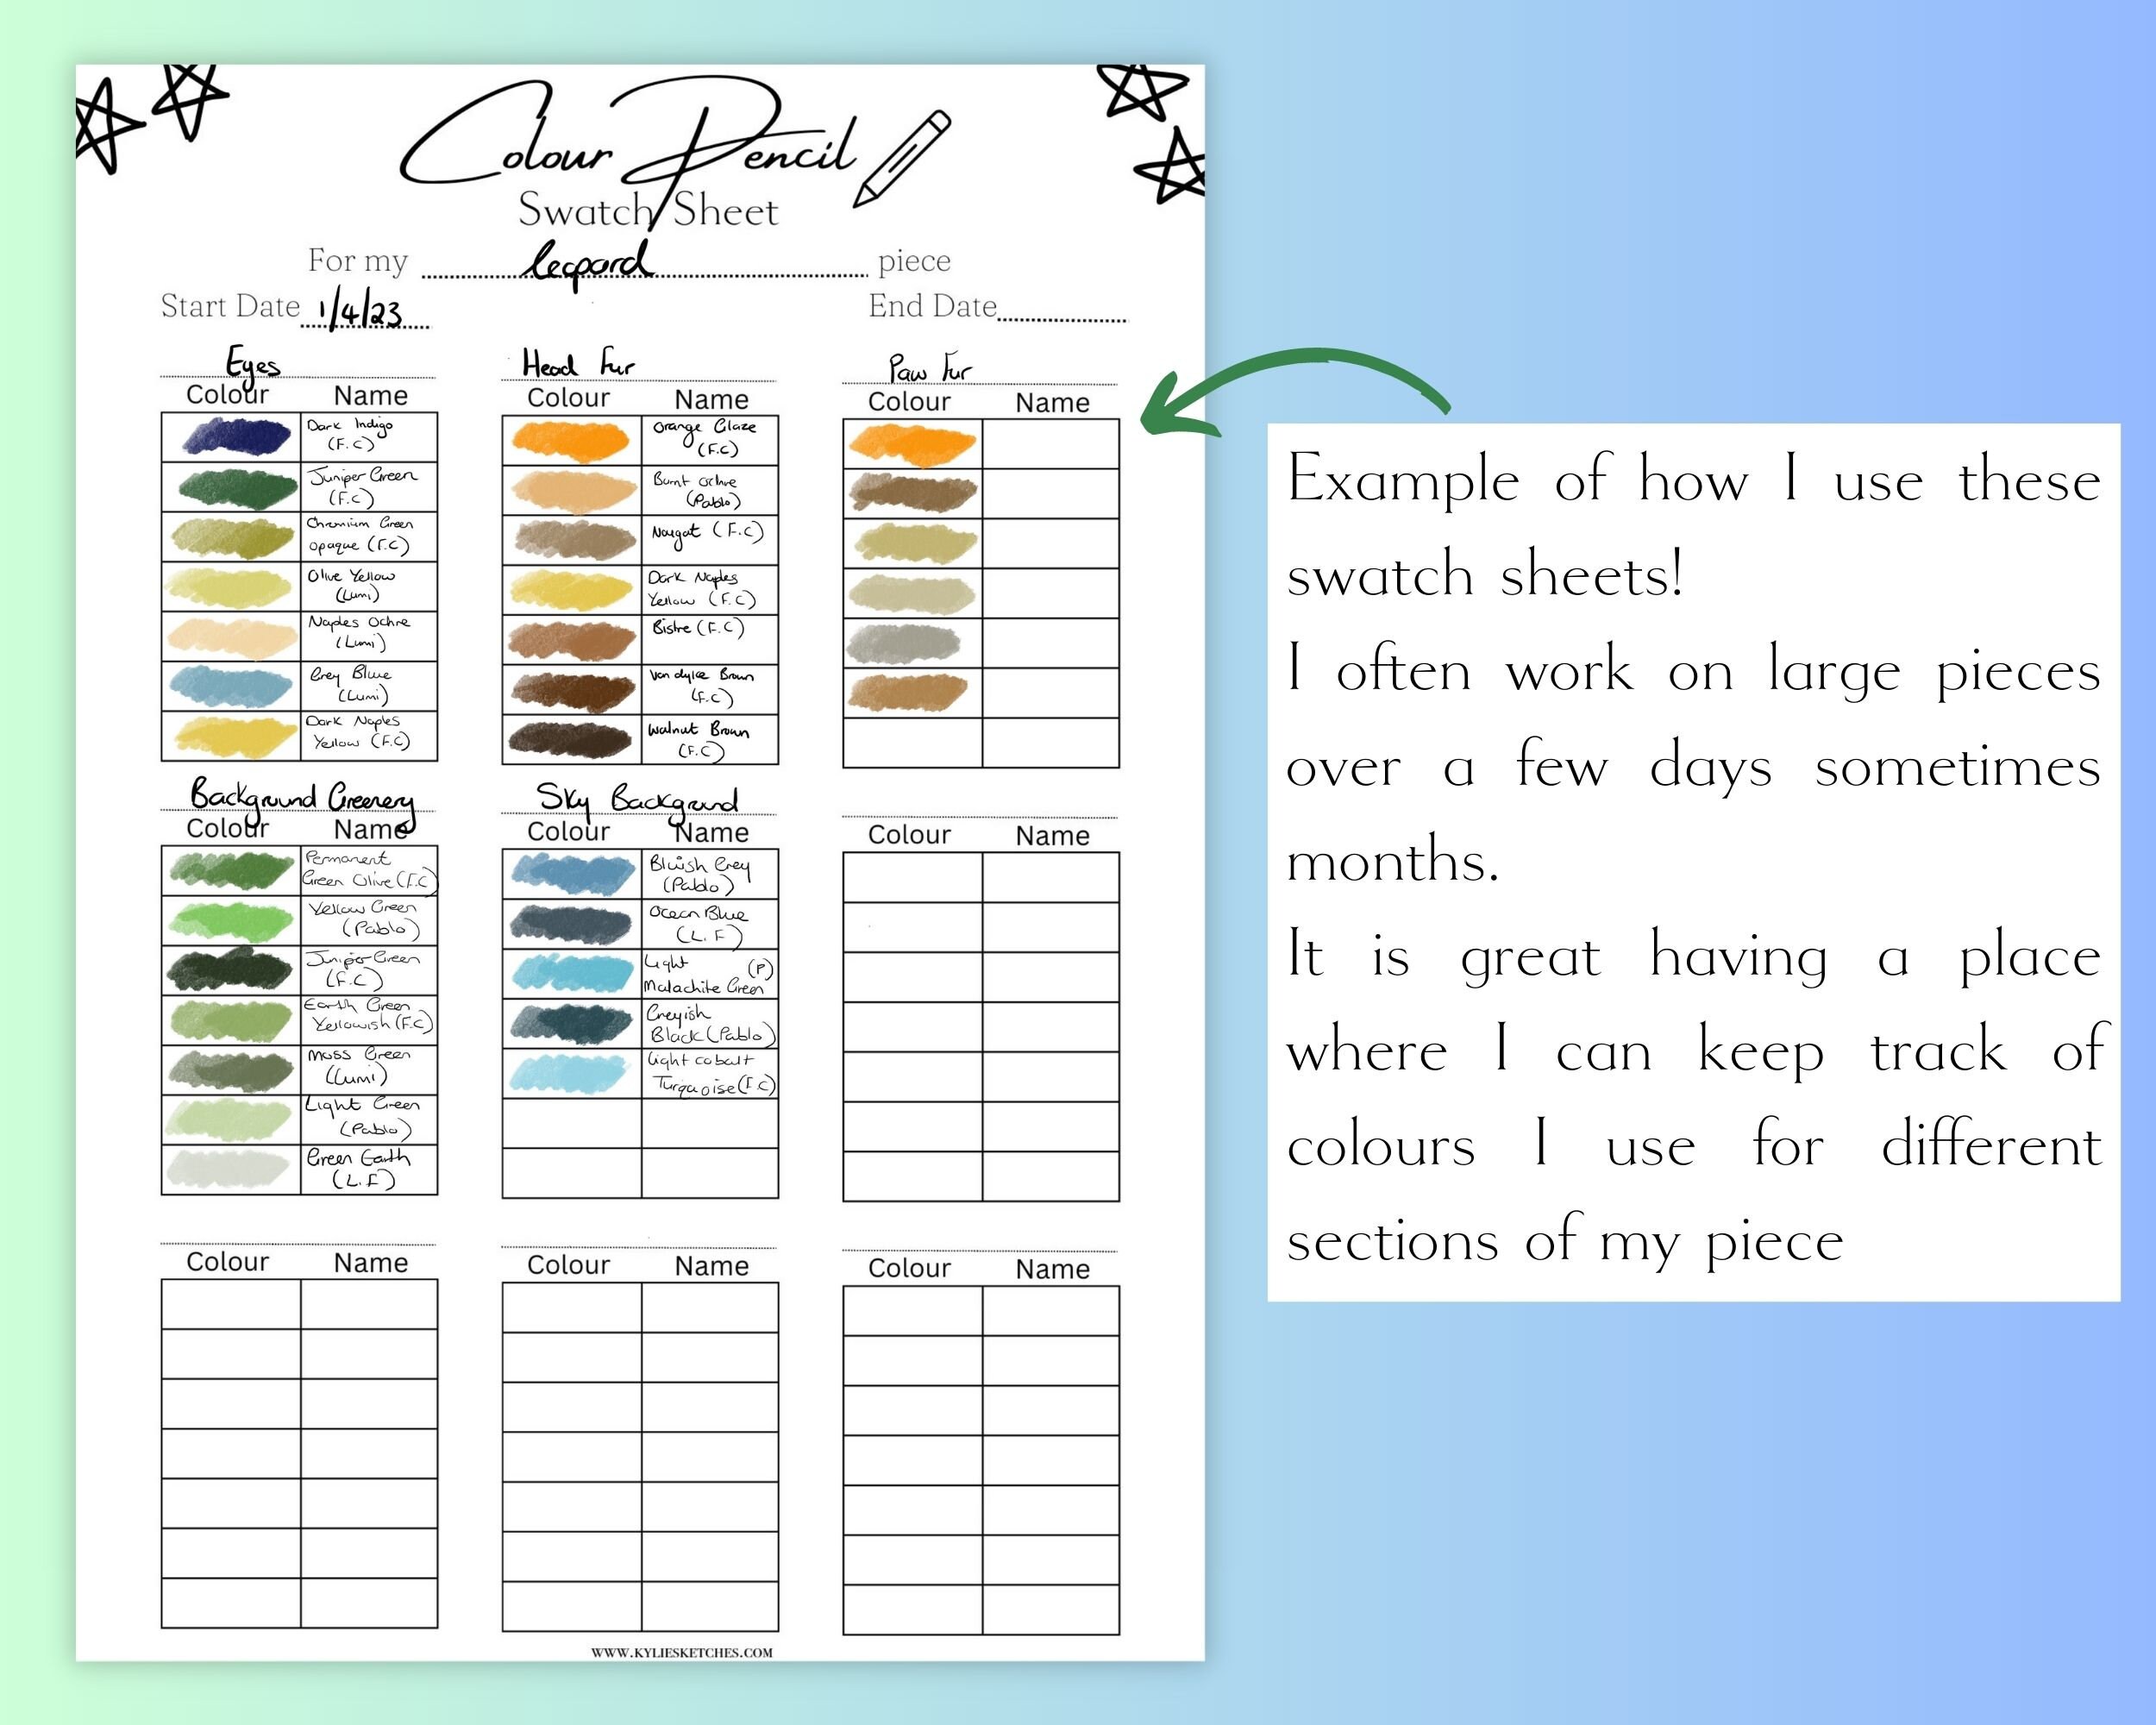 Colour Pencil
Swatch Sheet
For my leopard piece
Start Date 1/4/23 End Date
Eyes
Colour Name
Dark Indigo
(F.C)
Juniper Green
(F.C)
Chromium Green
opaque (F.C)
Olive Yellow
(Lumi)
Naples Ochre
(Lumi)
Grey Blue
(Lumi)
Dark Naples
Yellow (F.C)
Head Fur
Colour Name
Orange Glaze
(F.C)
Burnt Ochre
(Pablo)
Nougat (F.C)
Dark Naples
Yellow (F.C)
Bistre (F.C)
Van dyke Brown
(F.C)
Walnut Brown
(F.C)
Paw Fur
Colour Name
Background Greenery
Colour Name
Permanent
Green Olive (F.C)
Yellow Green
(Pablo)
Juniper Green
(F.C)
Earth Green
Yellowish (F.C)
Moss Green
(Lumi)
Light Green
(Pablo)
Green Earth
(L.F)
Sky Background
Colour Name
Bluish Grey
(Pablo)
Ocean Blue
(L.F)
Light (P)
Malachite Green
Greyish
Black (Pablo)
Light cobalt
Turquoise (F.C)
Colour Name
Colour Name
Colour Name
Colour Name
WWW.KYLIESKETCHES.COM
Example of how I use these
swatch sheets!
I often work on large pieces
over a few days sometimes
months.
It is great having a place
where I can keep track of
colours I use for different
sections of my piece